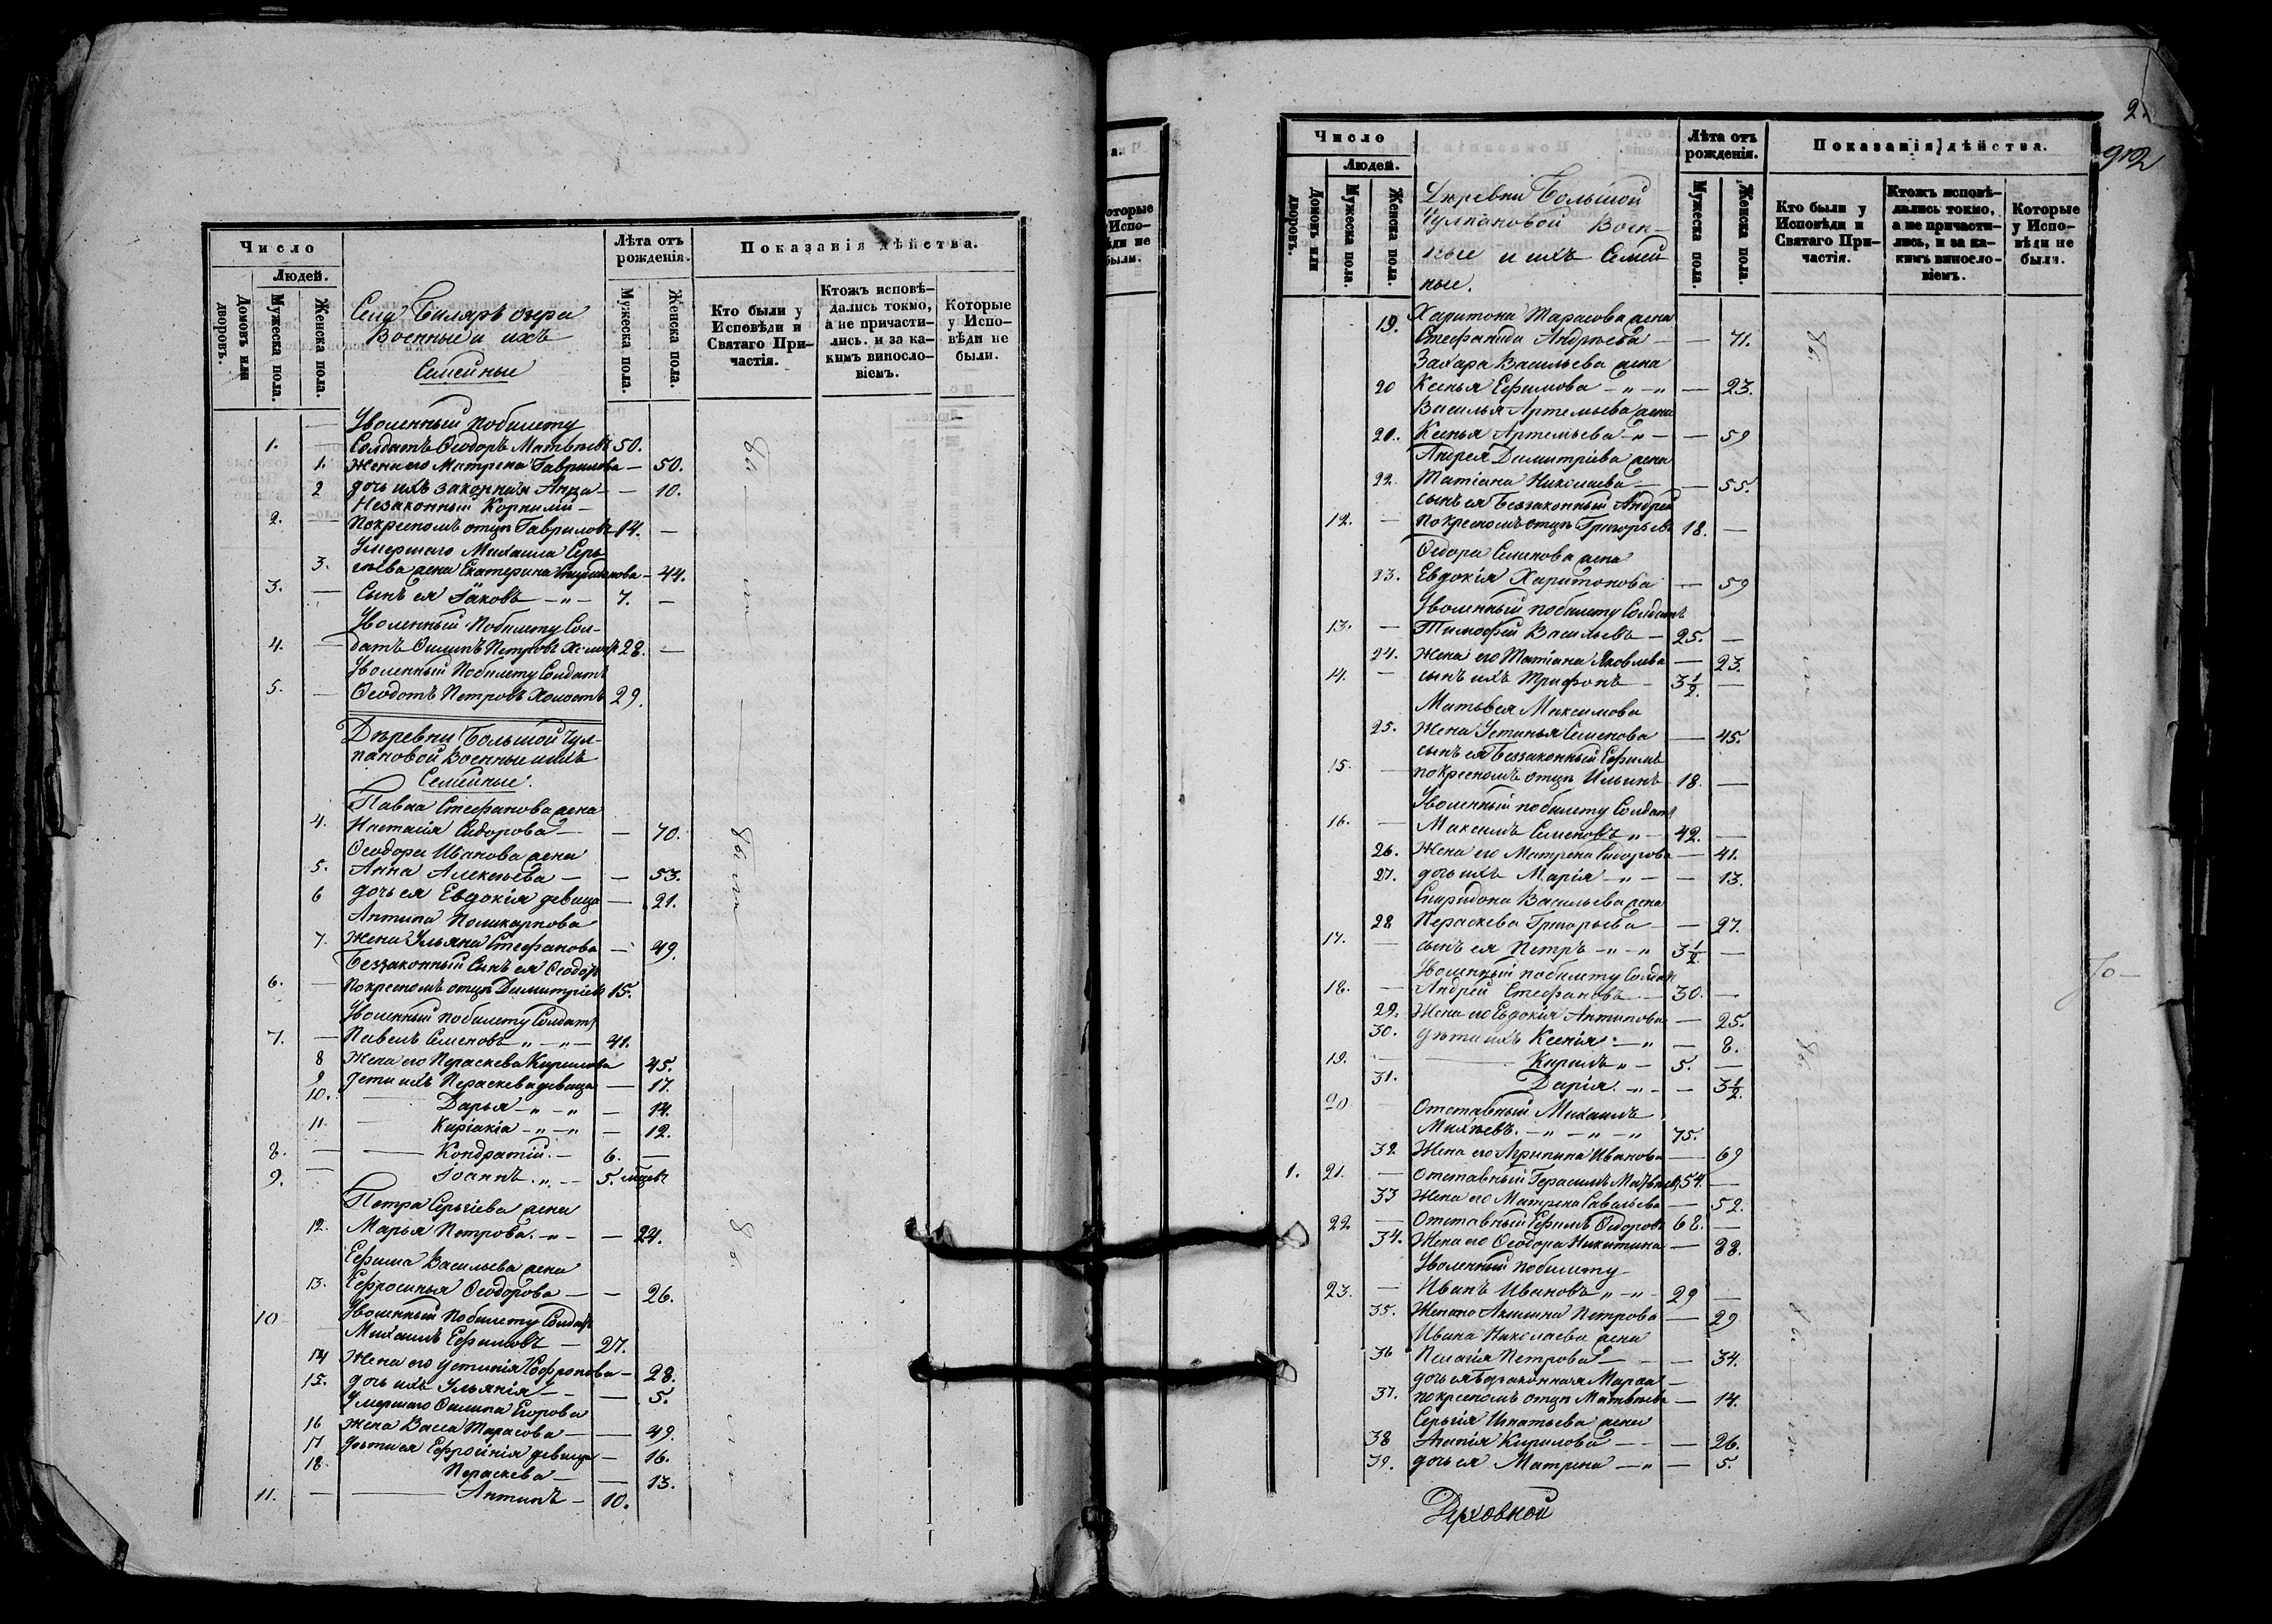 Число
Людей.
Домовъ или дворовъ.
Мужеска пола.
Женска пола.
Села Биляръ озера
Военные и ихъ
Семейные
Лѣта отъ рожденія.
Мужеска пола.
Женска пола.
Показанія дѣйства.
Кто были у Исповѣди и Святаго Причастія.
Ктожъ исповѣдались токмо, а не причастились, и за какимъ винословіемъ.
Которые у Исповѣди не были.
Уволенный побилету
1. — Солдатъ Ѳеодоръ Матвѣевъ 50.
1. Жена его Матрена Гаврилова — 50.
2 дочь ихъ законная Анна — — 10.
Незаконный Корнилій —
2. — Покресномъ отцѣ Гавриловъ 14. —
Умершаго Михаила Серь-
3. гѣева жена Екатерина Спиридонова — 44.
3. — Сынъ ея Іаковъ — „ — 7. —
Уволенный Побилету Сол-
4. — датъ Филипъ Петровъ Холостъ 28. —
Уволенный Побилету Солдатъ
5. — Ѳеодотъ Петровъ Холостъ 29.
Деревни Большой Чул-
пановой Военные и ихъ
Семейные.
Павла Стефанова жена
4. Настасія Сидорова — — 70.
Ѳеодора Иванова жена
5. Анна Алексѣева — — 53.
6 дочь ея Евдокія девица — 21.
Антипа Поликарпова
7. Жена Ульяна Стефанова — 49.
Беззаконный Сынъ ея Ѳеодоръ
6. — Покресномъ отцѣ Димитріевъ 15.
Уволенный побилету Солдатъ
7. — Павелъ Семеновъ — „ — „ — 41.
8 Жена его Пераскева Кирилова 45.
9 дети ихъ Пераскева девица — 17.
10. Дарья — „ — „ — 14.
11. Киріакія — „ — „ — 12.
8. — Кондратій. — 6. —
9. — Іоаннъ. „ — 5. мѣсяц.
Петра Сергіева жена
12. Марья Петрова. — „ — — 24.
Ефима Васильева жена
13. Ефросинья Ѳеодорова — — 26.
Уволенный Побилету Солдатъ
10 Михаилъ Ефимовъ — 27.
14 Жена его Устинія Софронова — 28.
15. дочь ихъ Ульянія — — — 5.
Умершаго Филипа Егорова
16 Жена Васса Тарасова — — 49.
17 Дѣти ея Ефросинія девица — 16.
18 Пераскева — — 13.
11. — Антипъ — 10.
были
были
2.
902
Число
Людей.
Домовъ или дворовъ.
Мужеска пола.
Женска пола.
Деревни Большой
Чулпановой Воен-
ные и ихъ Семей
ные.
Лѣта отъ рожденія.
Мужеска пола.
Женска пола.
Показанія дѣйства.
Кто были у Исповѣди и Святаго Причастія.
Ктожъ исповѣдались токмо, а не причастились, и за какимъ винословіемъ.
Которые у Исповѣди не были.
Харитона Тарасова жена
19. Стефанида Андреева — — 71.
Захара Васильева жена
20 Ксенья Ефимова — „ — „ — 23.
Василья Артемьева жена
21. Ксенья Артемьева — „ — — 59
Андрея Димитріева жена
22. Татіана Николаева — — 55.
сынъ ея Беззаконный Андрей
12. — покресномъ отцѣ Григорьевъ 18. —
Ѳедора Семенова жена
23. Евдокія Харитонова — 59
Уволенный побилету Солдатъ
13. — Тимофей Васильевъ — 25. —
24. Жена его Татіана Яковлева — 23.
14. — сынъ ихъ Трифонъ — 3½. —
Матвея Максимова
25. Жена Устинья Семенова — 45.
сынъ ея Беззаконный Ефимъ
15. — покресномъ отцѣ Ильинъ 18. —
Уволенный побилету Солдатъ
16. — Максимъ Семеновъ „ — 42. —
26. Жена его Матрена Сидорова — 41.
27. дочь ихъ Марія — „ — — 13.
Спиридона Васильева жена
28 Пераскева Григорьева — — 27.
17. — сынъ ея Петръ — „ — „ 3½. —
Уволенный побилету Солдатъ
18. — Андрей Стефановъ — 30. —
29. Жена его Евдокія Антипова — 25.
30. дѣти ихъ Ксенія. — „ — 8.
19. — Кирилъ „ — 5. —
31. Дарія. — „ — — 3½.
20 Отставный Михаилъ
Михѣевъ. — „ — „ — „ 75.
32. Жена его Агрипина Иванова — 69
1. 21. — Отставный Герасимъ Матвѣевъ 54. —
33 Жена его Матрена Савельева — 52.
22 — Отставный Ефимъ Ѳедоровъ 68. —
34. Жена его Ѳеодора Никитина — 88.
Уволенный побилету —
23. — Иванъ Ивановъ „ — „ — 29 —
35. Жена его Акилина Петрова — 29
Ивана Николаева жена
36 Пелагія Петрова — — — 34.
37. покресномъ отцѣ Матвѣева — 14.
Сергія Игнатьева жена
38 Агапія Кирилова — — — 26.
39. дочь ея Матрена — „ — 5.
были
были
Духовной